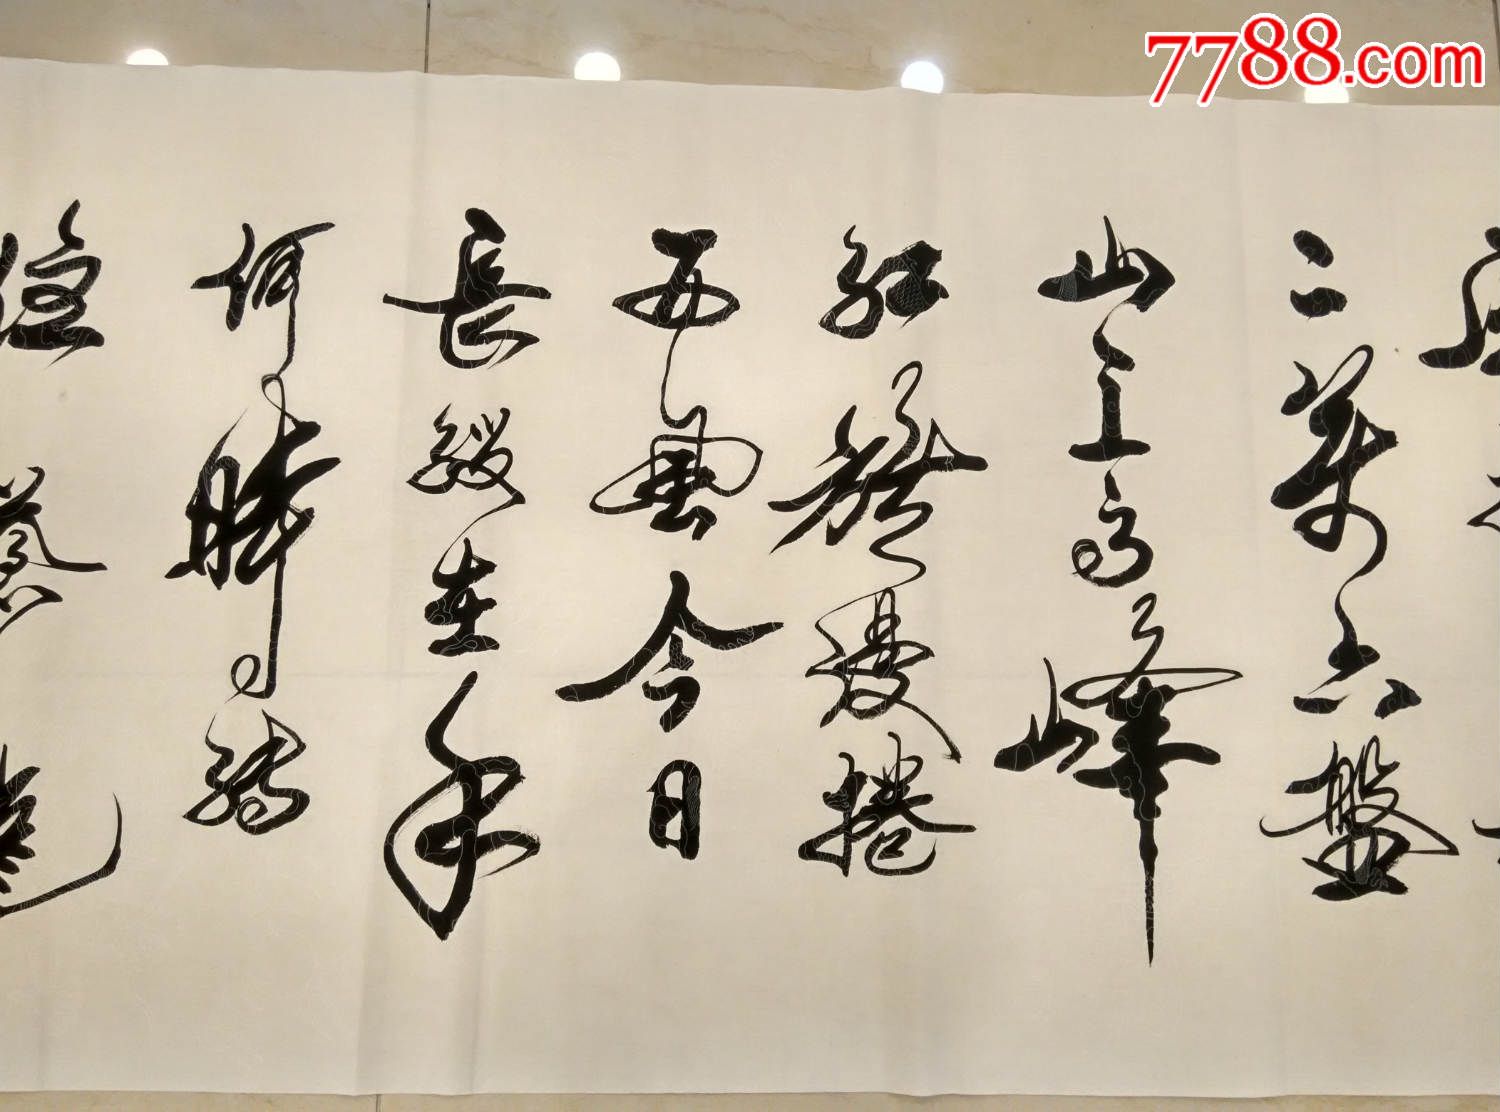 二萬六盤
山上高峰
紅旗漫捲
西風今日
長纓在手
何時縛
住蒼龍
7788.com